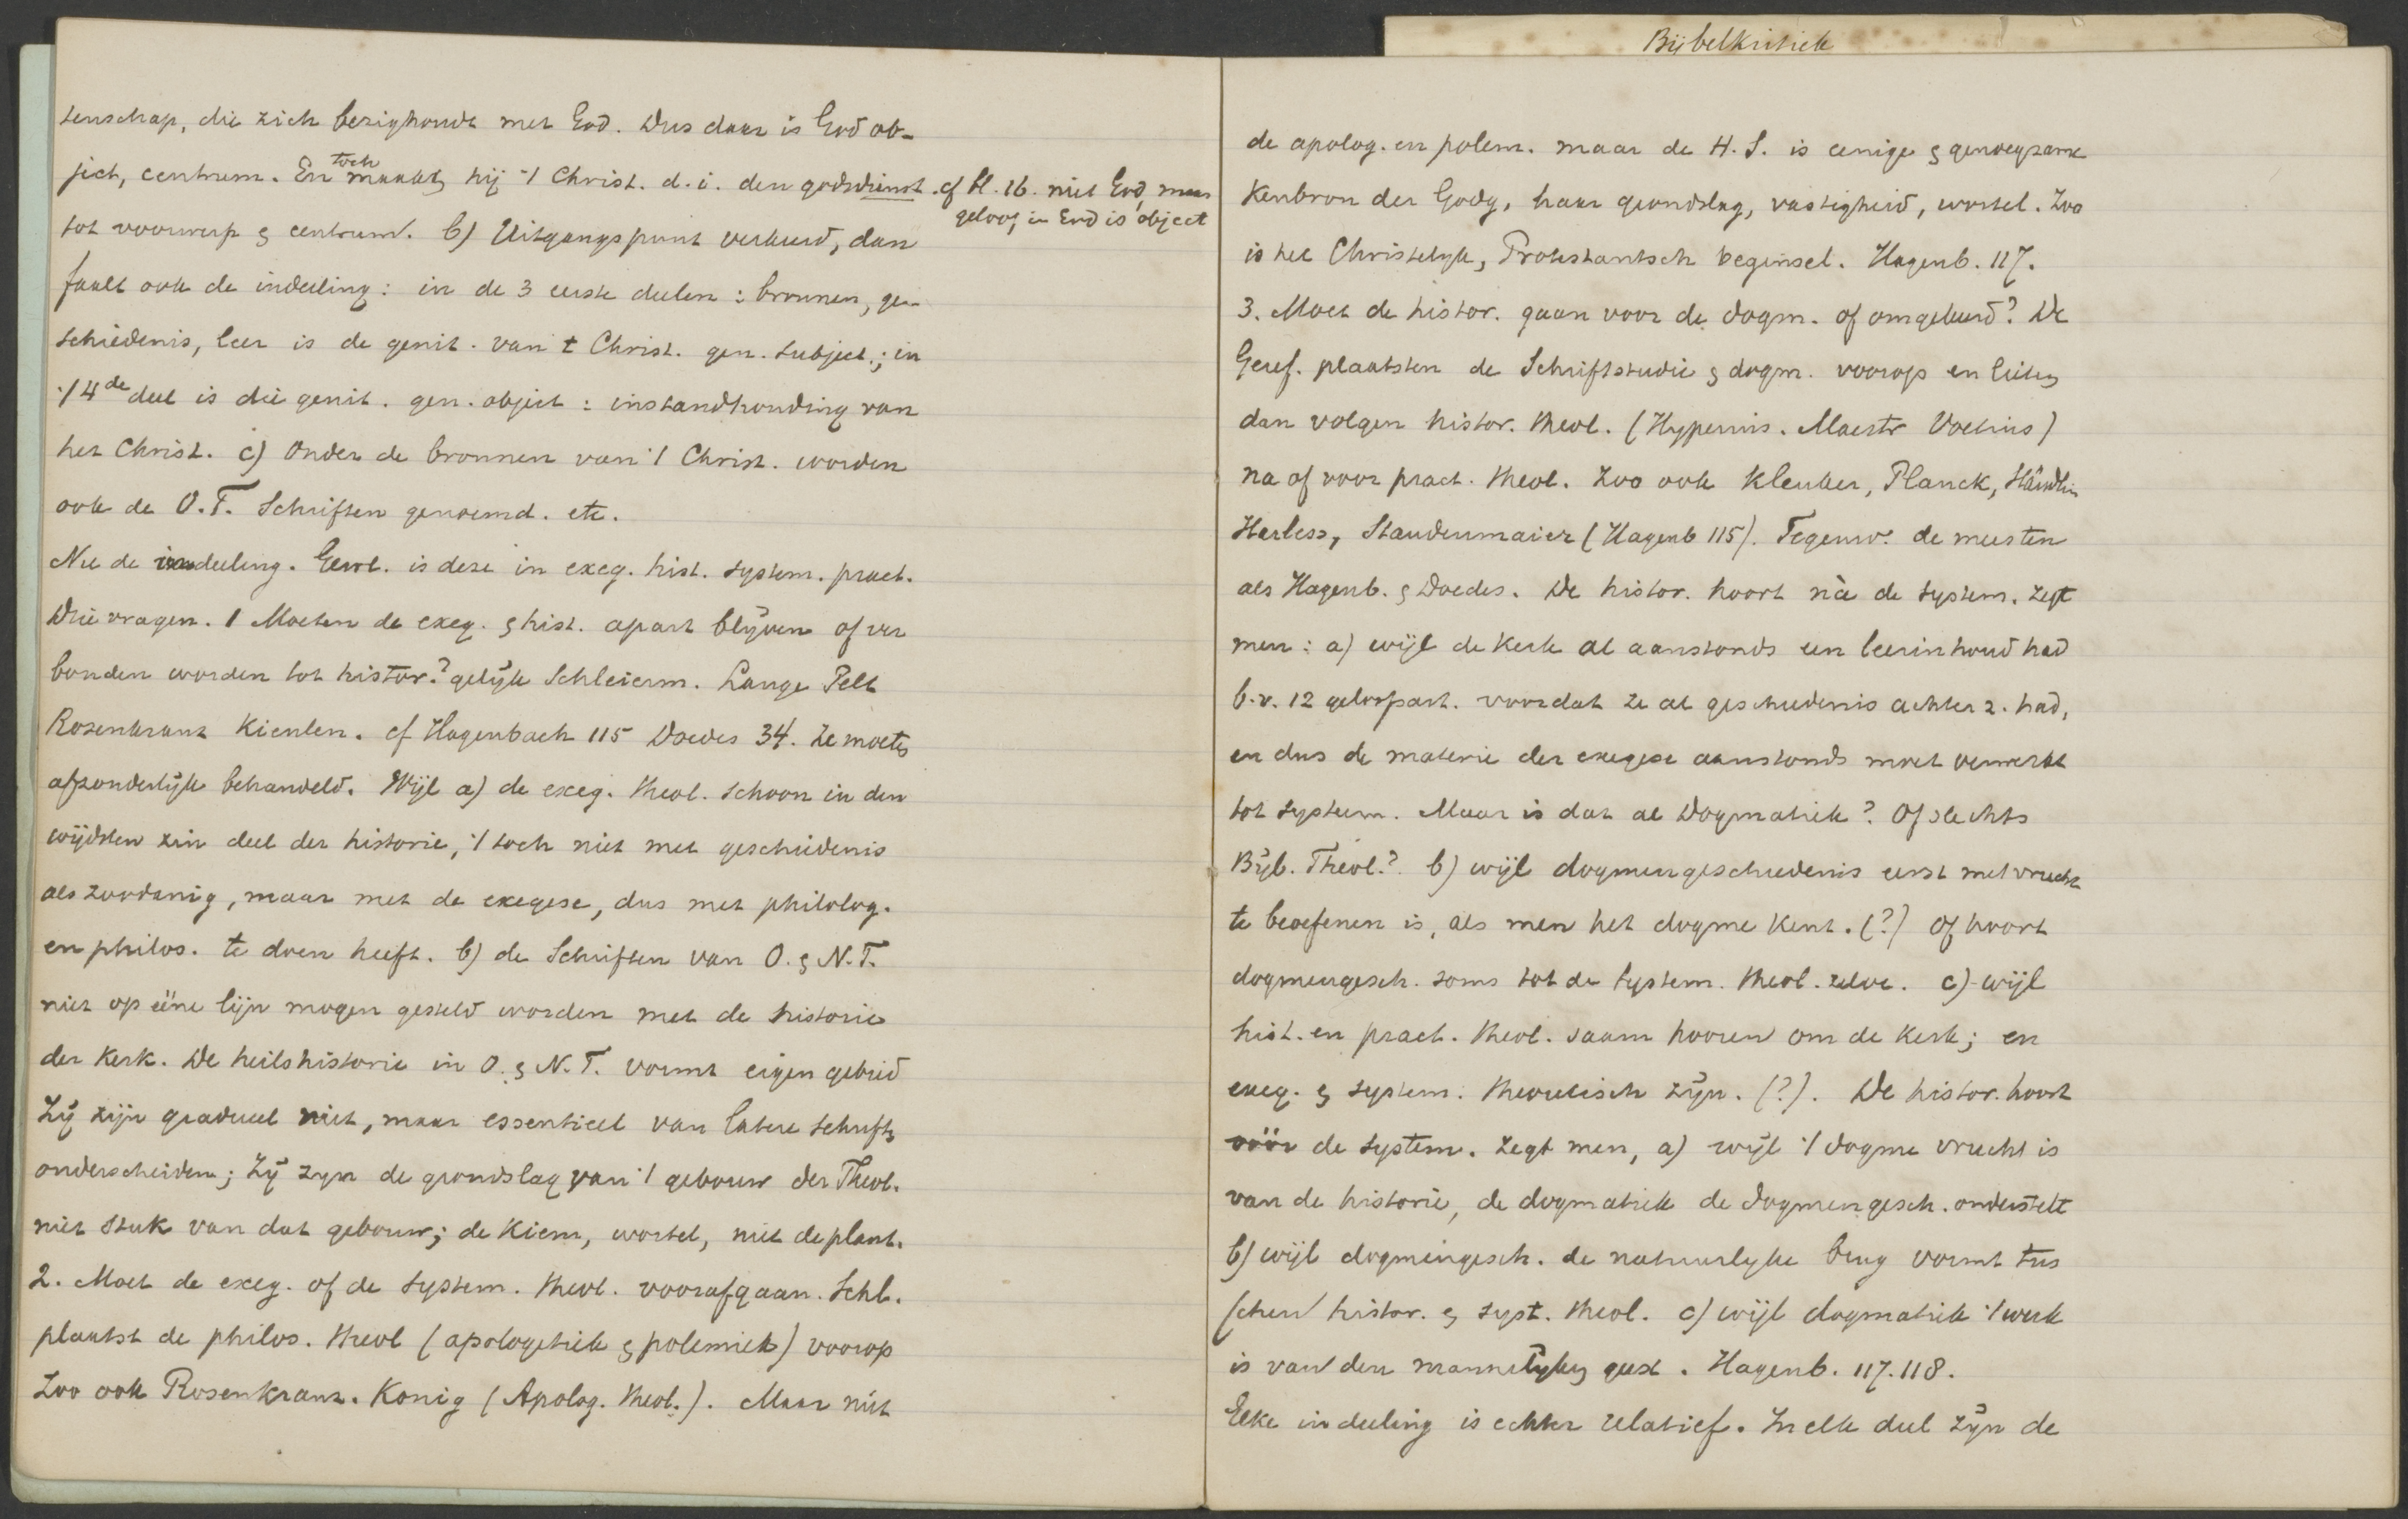 tenschap, die zich bezighoudt met God. Dus daar is God ob-
ject, centrum. En toch maakt hij 't Christ. d.i. den godsdienst
tot voorwerp & centrum. b) Uitgangspunt verkeerd, dan
faalt ook de indeeling: in de 3 eerste deelen: bronnen, ge-
schiedenis, leer is de genit. van 't Christ. gen. subject.; in
't 4de deel is die genit. gen. object: instandhouding van
het Christ. c) Onder de bronnen van 't Christ. worden
ook de O.T. Schriften genoemd. etc.
Nu de indeeling. Gew. is deze in exeg. hist. system. pract.
Drie vragen. 1 Moeten de exeg. & hist. apart blijven of ver
bonden worden tot histor.? gelijk Schleierm. Lange Pelt
Rosenkranz Kienlen. cf Hagenbach 115 Doedes 34. Ze moeten
afzonderlijk behandeld. Wijl a) de exeg. theol. schoon in den
wijdsten zin deel der historie, 't toch niet met geschiedenis
als zoodanig, maar met de exegese, dus met philolog.
en philos. te doen heeft. b) de Schriften van O. & N.T.
niet op ééne lijn mogen gesteld worden met de historie
der Kerk. De heilshistorie in O. & N.T. vormt eigen gebied
Zij zijn gradueel niet, maar essentieel van latere schriften
onderscheiden; Zij zijn de grondslag van 't gebouw der Theol.
niet stuk van dat gebouw; de Kiem, wortel, niet de plant.
2. Moet de exeg. of de system. theol. voorafgaan. Schl.
plaatst de philos. theol (apologetiek & polemiek) voorop
Zoo ook Rosenkranz. Konig (Apolog. theol.). Maar niet
cf bl. 16. niet God, maar
geloof in God is object
Bijbelkritiek
de apolog. en polem. maar de H.S. is eenige & genoegzame
Kenbron der Godg, haar grondslag, vastigheid, wortel. Zoo
is het Christelijk, Protestantsch beginsel. Hagenb. 117.
3. Moet de histor. gaan voor de dogm. of omgekeerd? De
Geref. plaatsten de Schriftstudie & dogm. voorop en lieten
dan volgen histor. theol. (Hyperius. Maestr Voetius)
na of voor pract. theol. Zoo ook Kleuker, Planck, Stäudlin
Harless, Staudenmaier (Hagenb 115). Tegenw. de meesten
als Hagenb. & Doedes. De histor. hoort ná de system. zegt
men: a) wijl de Kerk al aanstonds een leerinhoud had
b.v. 12 geloofsart. voordat ze al geschiedenis achter z. had,
en dus de materie der exegese aanstonds moet verwerkt
tot systeem. Maar is dat al Dogmatiek? Of slechts
Bijb. Theol.? b) wijl dogmengeschiedenis eerst met vrucht
te beoefenen is, als men het dogme Kent. (?) Of hoort
dogmengesch. soms tot de system. theol. zelve. c) wijl
hist. en pract. theol. saam hooren om de Kerk; en
exeg. & system. theoretisch zijn. (?). De histor. hoort
vóór de system. zegt men, a) wijl 't dogme vrucht is
van de historie, de dogmatiek de dogmengesch. onderstelt
b) wijl dogmengesch. de natuurlijke brug vormt tus
schen histor. & syst. theol. c) wijl dogmatiek 't werk
is van den mannelijken geest. Hagenb. 117.118.
Elke indeeling is echter relatief. In elk deel zijn de